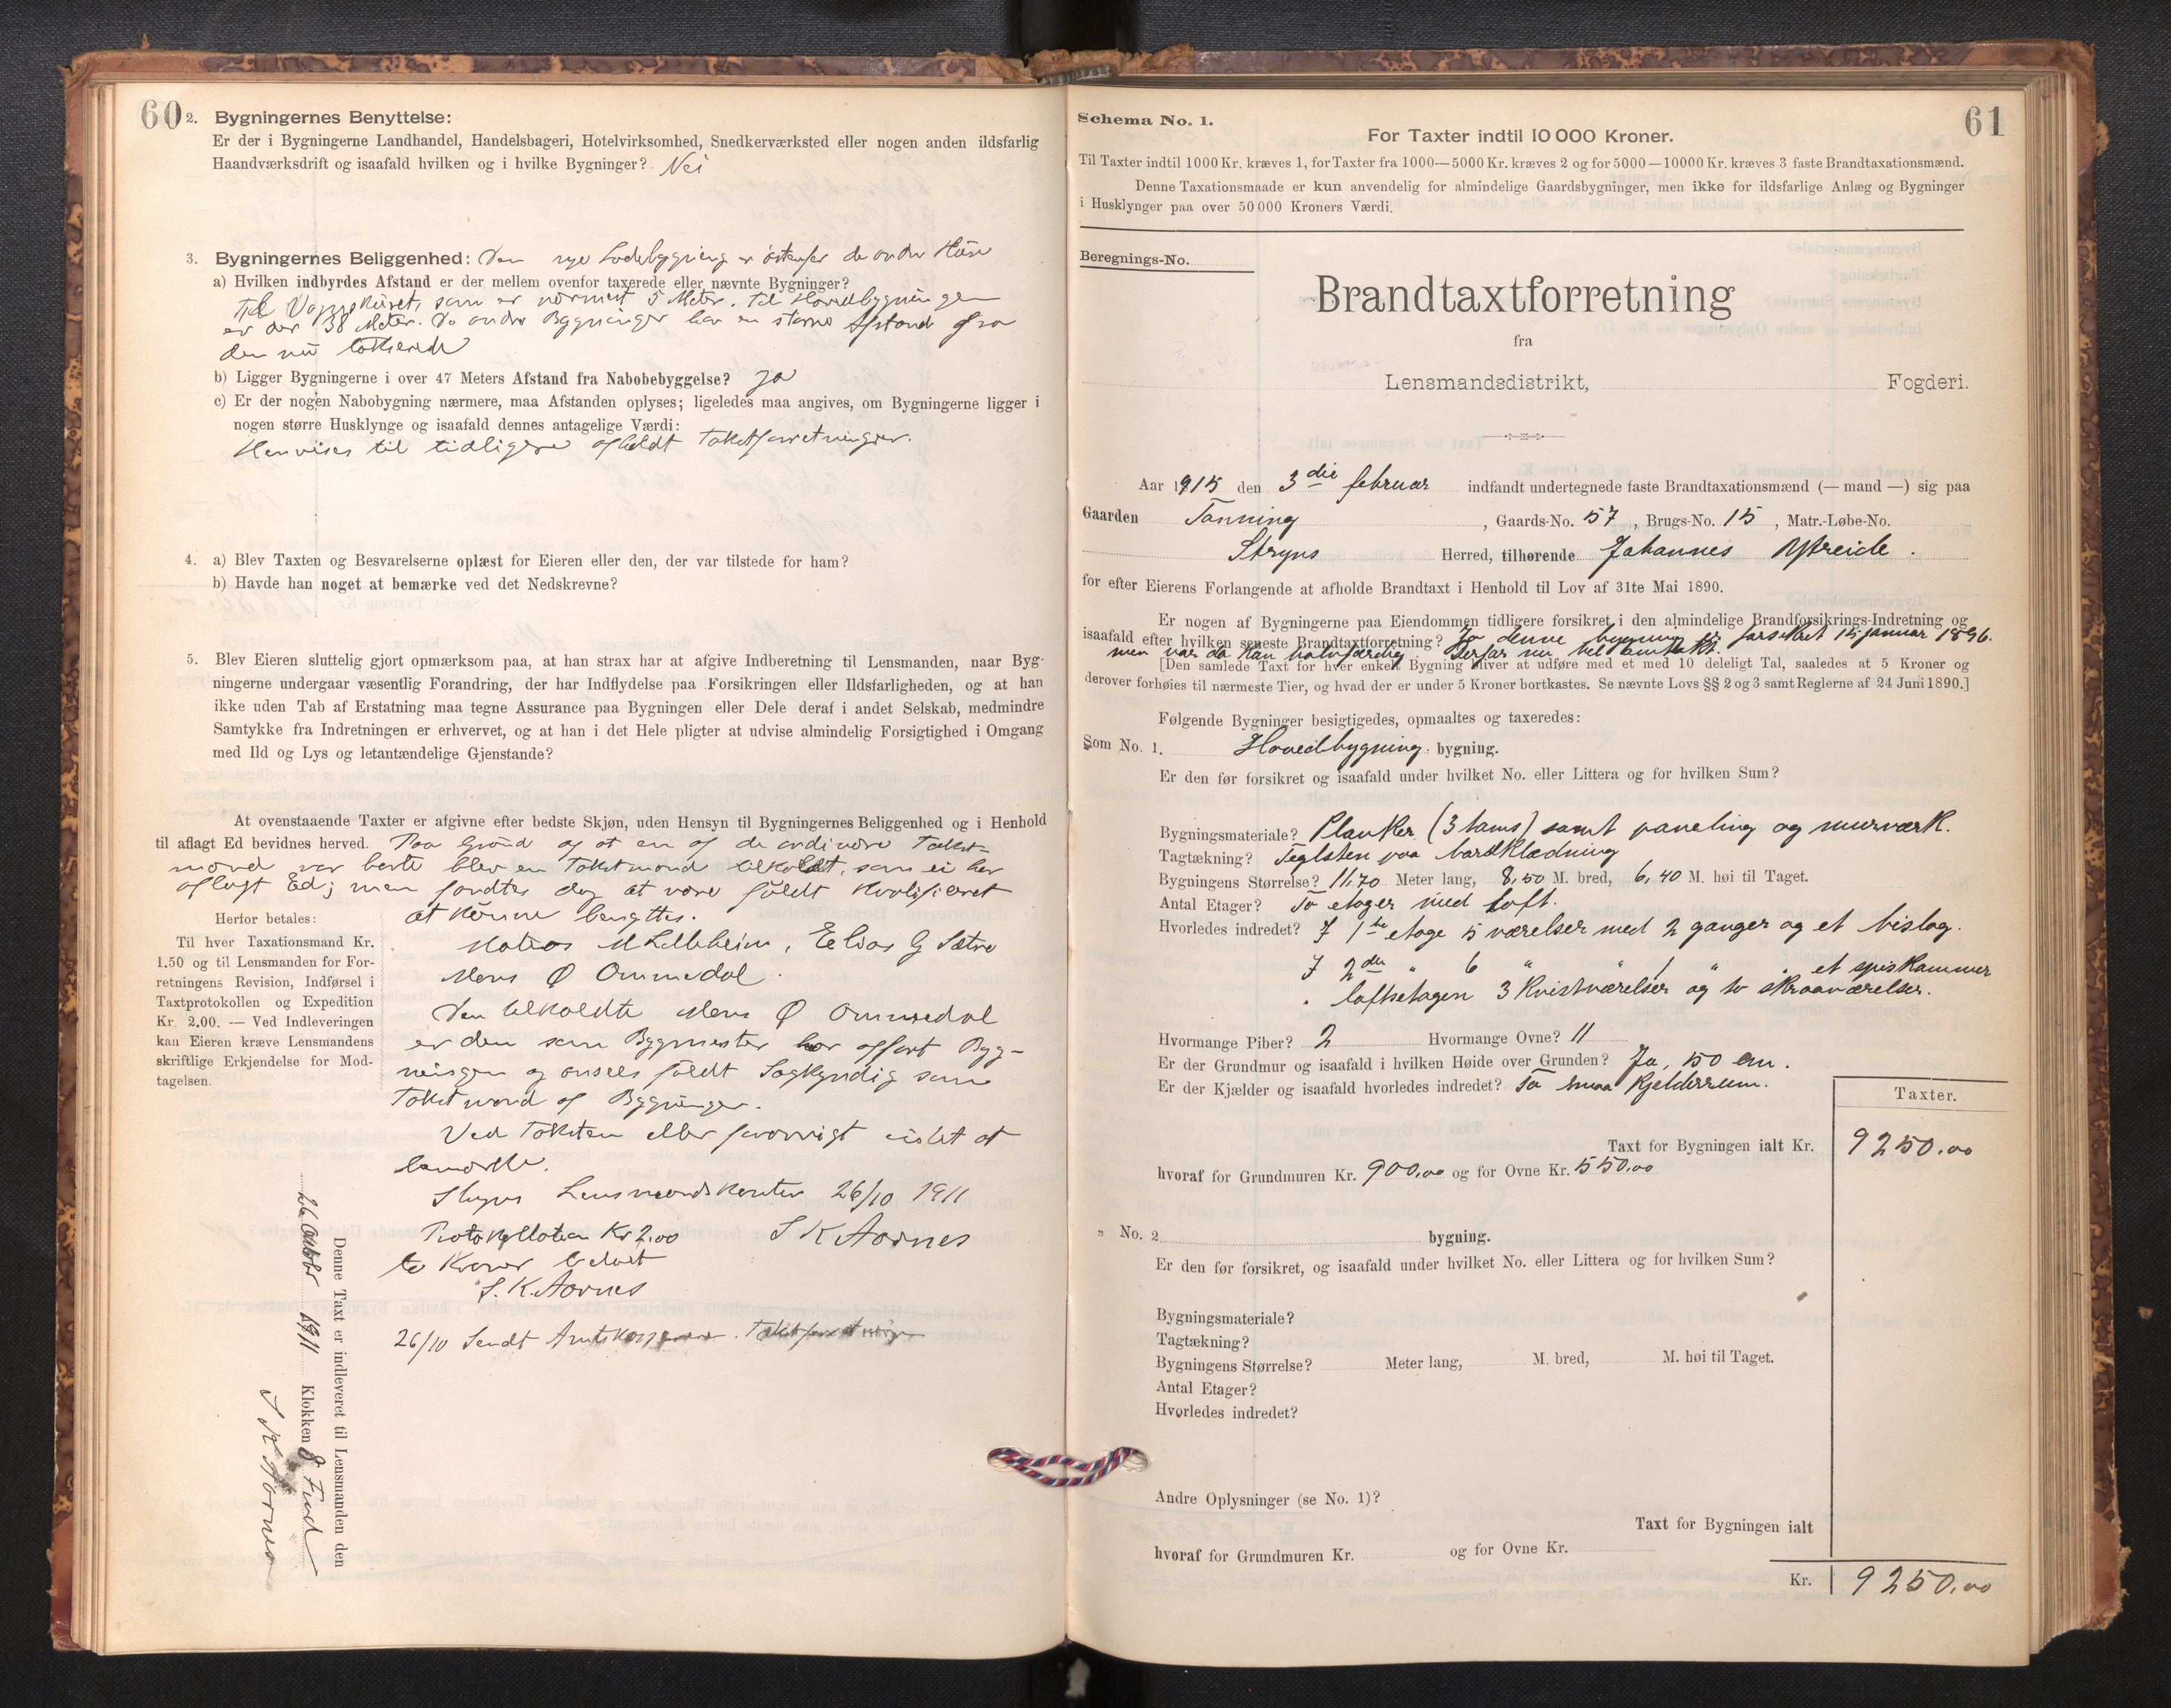 60
2. Bygningernes Benyttelse:
Er der i Bygningerne Landhandel, Handelsbageri, Hotelvirksomhed, Snedkerværksted eller nogen anden ildsfarlig
Haandværksdrift og isaafald hvilken og i hvilke Bygninger? Nei
3. Bygningernes Beliggenhed: Den nye Lødebygning er østenfor de andre Huse
a) Hvilken indbyrdes Afstand er der mellem ovenfor taxerede eller nævnte Bygninger?
Til Vognskuret, som er nærmest 5 Meter. Til Hovedbygningen
er der 38 Meter. De andre Bygninger har en større Afstand fra
den nu takserede
b) Ligger Bygningerne i over 47 Meters Afstand fra Nabobebyggelse? Ja
c) Er der nogen Nabobygning nærmere, maa Afstanden oplyses; ligeledes maa angives, om Bygningerne ligger i
nogen større Husklynge og isaafald dennes antagelige Værdi:
Henvises til tidligere afholdt Takstforretninger.
4. a) Blev Taxten og Besvarelserne oplæst for Eieren eller den, der var tilstede for ham?
b) Havde han noget at bemærke ved det Nedskrevne?
5. Blev Eieren sluttelig gjort opmærksom paa, at han strax har at afgive Indberetning til Lensmanden, naar Byg-
ningerne undergaar væsentlig Forandring, der har Indflydelse paa Forsikringen eller Ildsfarligheden, og at han
ikke uden Tab af Erstatning maa tegne Assurance paa Bygningen eller Dele deraf i andet Selskab, medmindre
Samtykke fra Indretningen er erhvervet, og at han i det Hele pligter at udvise almindelig Forsigtighed i Omgang
med Ild og Lys og letantændelige Gjenstande?
At ovenstaaende Taxter er afgivne efter bedste Skjøn, uden Hensyn til Bygningernes Beliggenhed og i Henhold
til aflagt Ed bevidnes herved. Paa Grund af at en af de ordinære Takst-
mænd var borte blev en Takstmand tilkaldt, som ei har
aflagt Ed; men fandtes dog at være fuldt kvalifiseret
at kunne benyttes.
Herfor betales:
Til hver Taxationsmand Kr.
1.50 og til Lensmanden for For-
retningens Revision, Indførsel i
Taxtprotokollen og Expedition
Kr. 2.00. — Ved Indleveringen
kan Eieren kræve Lensmandens
skriftlige Erkjendelse for Mod-
tagelsen.
Matias M Lilleheim, Elias G Sætre
Mons Ø Ommedal.
Den tilkaldte Mons Ø Ommedal
er den som Bygmester har opført Byg-
ningen og ansees fuldt Sagkyndig som
Takstmand af Bygninger.
Ved Taksten eller forøvrigt intet at
bemærke.
Stryns Lensmandskontor 26/10 1911
Protokollation Kr 2.00 S K Aarnes
to Kroner betalt
S. K. Aarnes
26/10 Sendt Takstforretning
Denne Taxt er indleveret til Lensmanden den
26 Oktobr 1911 Klokken 8 Fmd
S K Aarnes
61
Schema No. 1.
For Taxter indtil 10 000 Kroner.
Til Taxter indtil 1000 Kr. kræves 1, for Taxter fra 1000—5000 Kr. kræves 2 og for 5000—10000 Kr. kræves 3 faste Brandtaxationsmænd.
Denne Taxationsmaade er kun anvendelig for almindelige Gaardsbygninger, men ikke for ildsfarlige Anlæg og Bygninger
i Husklynger paa over 50000 Kroners Værdi.
Beregnings-No.
Brandtaxtforretning
fra
Lensmandsdistrikt, Fogderi.
Aar 1915 den 3die februar indfandt undertegnede faste Brandtaxationsmænd (— mand —) sig paa
Gaarden Tonning, Gaards-No. 57, Brugs-No. 15, Matr.-Løbe-No.
Stryns Herred, tilhørende Johannes Ytreide.
for efter Eierens Forlangende at afholde Brandtaxt i Henhold til Lov af 31te Mai 1890.
Er nogen af Bygningerne paa Eiendommen tidligere forsikret i den almindelige Brandforsikrings-Indretning og
isaafald efter hvilken seneste Brandtaxtforretning? Ja denne bygning er forsikret 15 januar 1896.
men var da kun halvfærdig derfor nu
[Den samlede Taxt for hver enkelt Bygning bliver at udføre med et med 10 deleligt Tal, saaledes at 5 Kroner og
derover forhøies til nærmeste Tier, og hvad der er under 5 Kroner bortkastes. Se nævnte Lovs §§ 2 og 3 samt Reglerne af 24 Juni 1890.]
Følgende Bygninger besigtigedes, opmaaltes og taxeredes:
Som No. 1. Hovedbygning bygning.
Er den før forsikret og isaafald under hvilket No. eller Littera og for hvilken Sum?
Bygningsmateriale? Planker (3 toms) samt paneling og murværk.
Tagtækning? Teglsten paa bordklædning
Bygningens Størrelse? 11,70 Meter lang, 8,50 M. bred, 6,40 M. høi til Taget.
Antal Etager? To etager med loft.
Hvorledes indredet? I 1ste etage 5 værelser med 2 ganger og et bislag.
I 2den " 6 " " 1 " et spiskammer
" loftsetagen 3 kvistværelser og to skraaværelser.
Hvormange Piber? 2 Hvormange Ovne? 11
Er der Grundmur og isaafald i hvilken Høide over Grunden? Ja, 150 cm.
Er der Kjælder og isaafald hvorledes indredet? To smaa kjelderrum.
Taxter.
Taxt for Bygningen ialt Kr. 9250.00
hvoraf for Grundmuren Kr. 900,00 og for Ovne Kr. 550.00
" No. 2 bygning.
Er den før forsikret, og isaafald under hvilket No. eller Littera og for hvilken Sum?
Bygningsmateriale?
Tagtækning?
Bygningens Størrelse? Meter lang, M. bred, M. høi til Taget.
Antal Etager?
Hvorledes indredet?
Andre Oplysninger (se No. 1)?
Taxt for Bygningen ialt
hvoraf for Grundmuren Kr. og for Ovne Kr.
Kr. 9250.00